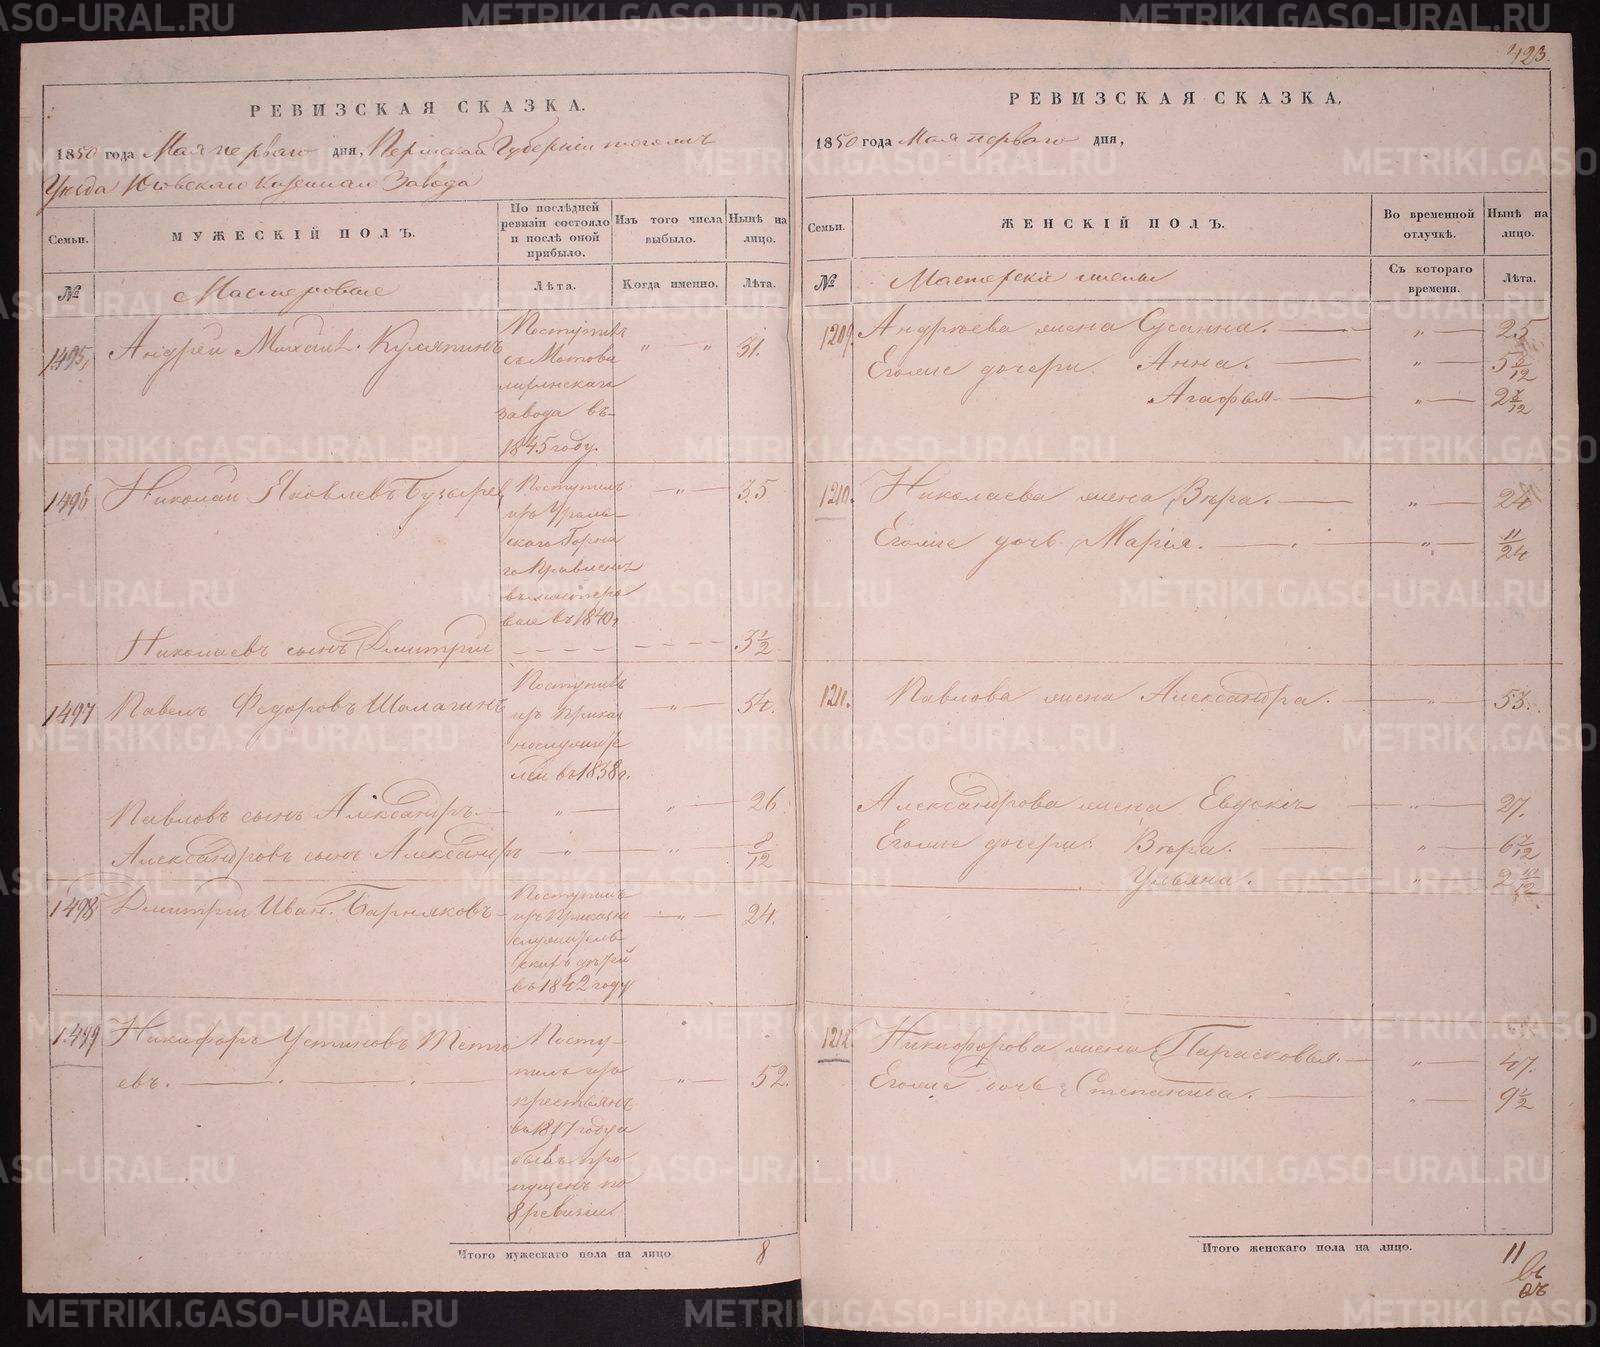 423.
РЕВИЗСКАЯ СКАЗКА.
1850 года Мая перваго дня, Пермской Губерніи тогожъ
Уѣзда Юговскаго Казеннаго Завода
Семьи.
МУЖЕСКІЙ ПОЛЪ.
По послѣдней ревизіи состояло и послѣ оной прибыло.
Изъ того числа выбыло.
Нынѣ на лицо.
№
Мастеровые
Лѣта.
Когда именно.
Лѣта.
1495.
Андрей Михаил. Куляпинъ
Поступилъ
съ Мотови
лихинскаго
завода въ
1845 году.
" — "
31.
1496
Николай Яковлевъ Бузырев
Поступилъ
изъ Ураль
скаго Горна
го Правленія
въ мастеро
вые въ 1840 г
— " —
35
Николаевъ сынъ Дмитрій
3 1/2
1497
Павелъ Федоровъ Шалагинъ
Поступилъ
изъ Приказ
нослужите
лей въ 1838 г.
— " —
54.
Павловъ сынъ Александръ. — " — " — 26.
Александровъ сынъ Александръ — " — " — 8/12
1498
Дмитрій Иван. Барняковъ
Поступилъ
изъ Приказно
служитель
скихъ дѣтей
въ 1842 году
— " —
24.
1499
Никифоръ Устиновъ Тетю
евъ.
Посту-
пилъ изъ
крестьянъ
въ 1817 году а
бывъ про
пущенъ по
8 ревизіи.
— " —
52.
Итого мужескаго пола на лицо 8
РЕВИЗСКАЯ СКАЗКА.
1850 года Мая перваго дня,
Семьи.
ЖЕНСКІЙ ПОЛЪ.
Во временной отлучкѣ.
Нынѣ на лицо.
№
Мастерскіе жены
Съ котораго времени.
Лѣта.
1209. Андреева жена Сусанна. — " — 25
Егоже дочери. Анна. — " — 5 3/12
Агафья — " — 2 7/12
1210. Николаева жена Вѣра. — " — 24
Егоже дочь Марія. — " — 11/24
1211. Павлова жена Александра. — " — 53.
Александрова жена Евдокія — " — 27.
Егоже дочери: Вѣра. — " — 6 7/12
Ульяна. — " — 2 10/12
1212. Никифорова жена Парасковья. — " — 47.
Егоже дочь Степанида. — " — 9 1/2
Итого женскаго пола на лицо. 11
METRIKI.GASO-URAL.RU